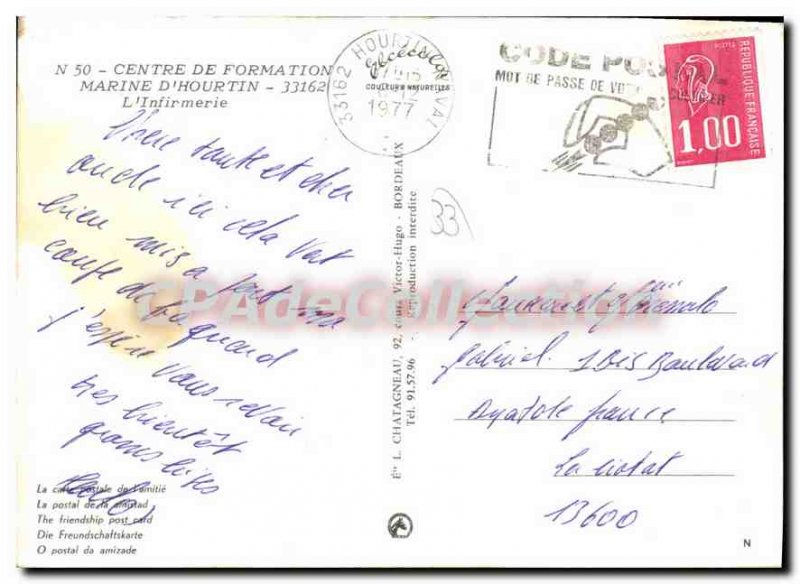 N 50 - CENTRE DE FORMATION
MARINE D'HOURTIN - 33162
L'Infirmerie
33162 HOURTIN NAVAL
Lyceecolor
COULEURS NATURELLES
1977
CODE POSTAL
MOT DE PASSE DE VOTRE COURRIER
REPUBLIQUE FRANÇAISE
POSTES
1,00
Chere tante et cher
oncle ici cela vat
bien mis a part ma
coupe de
quand
j'espère vous revoir
tres bientôt
grosses bises
33
Gabriel. 1 Bis Boulevard
Anatole france
La ciotat
13600
Éts L. CHATAGNEAU, 92, cours Victor-Hugo - BORDEAUX
Tél. 91.57.96 Reproduction interdite
CPAdeCollection
La carte postale de l'amitié
La postal de la amistad
The friendship post card
Die Freundschaftskarte
O postal da amizade
N